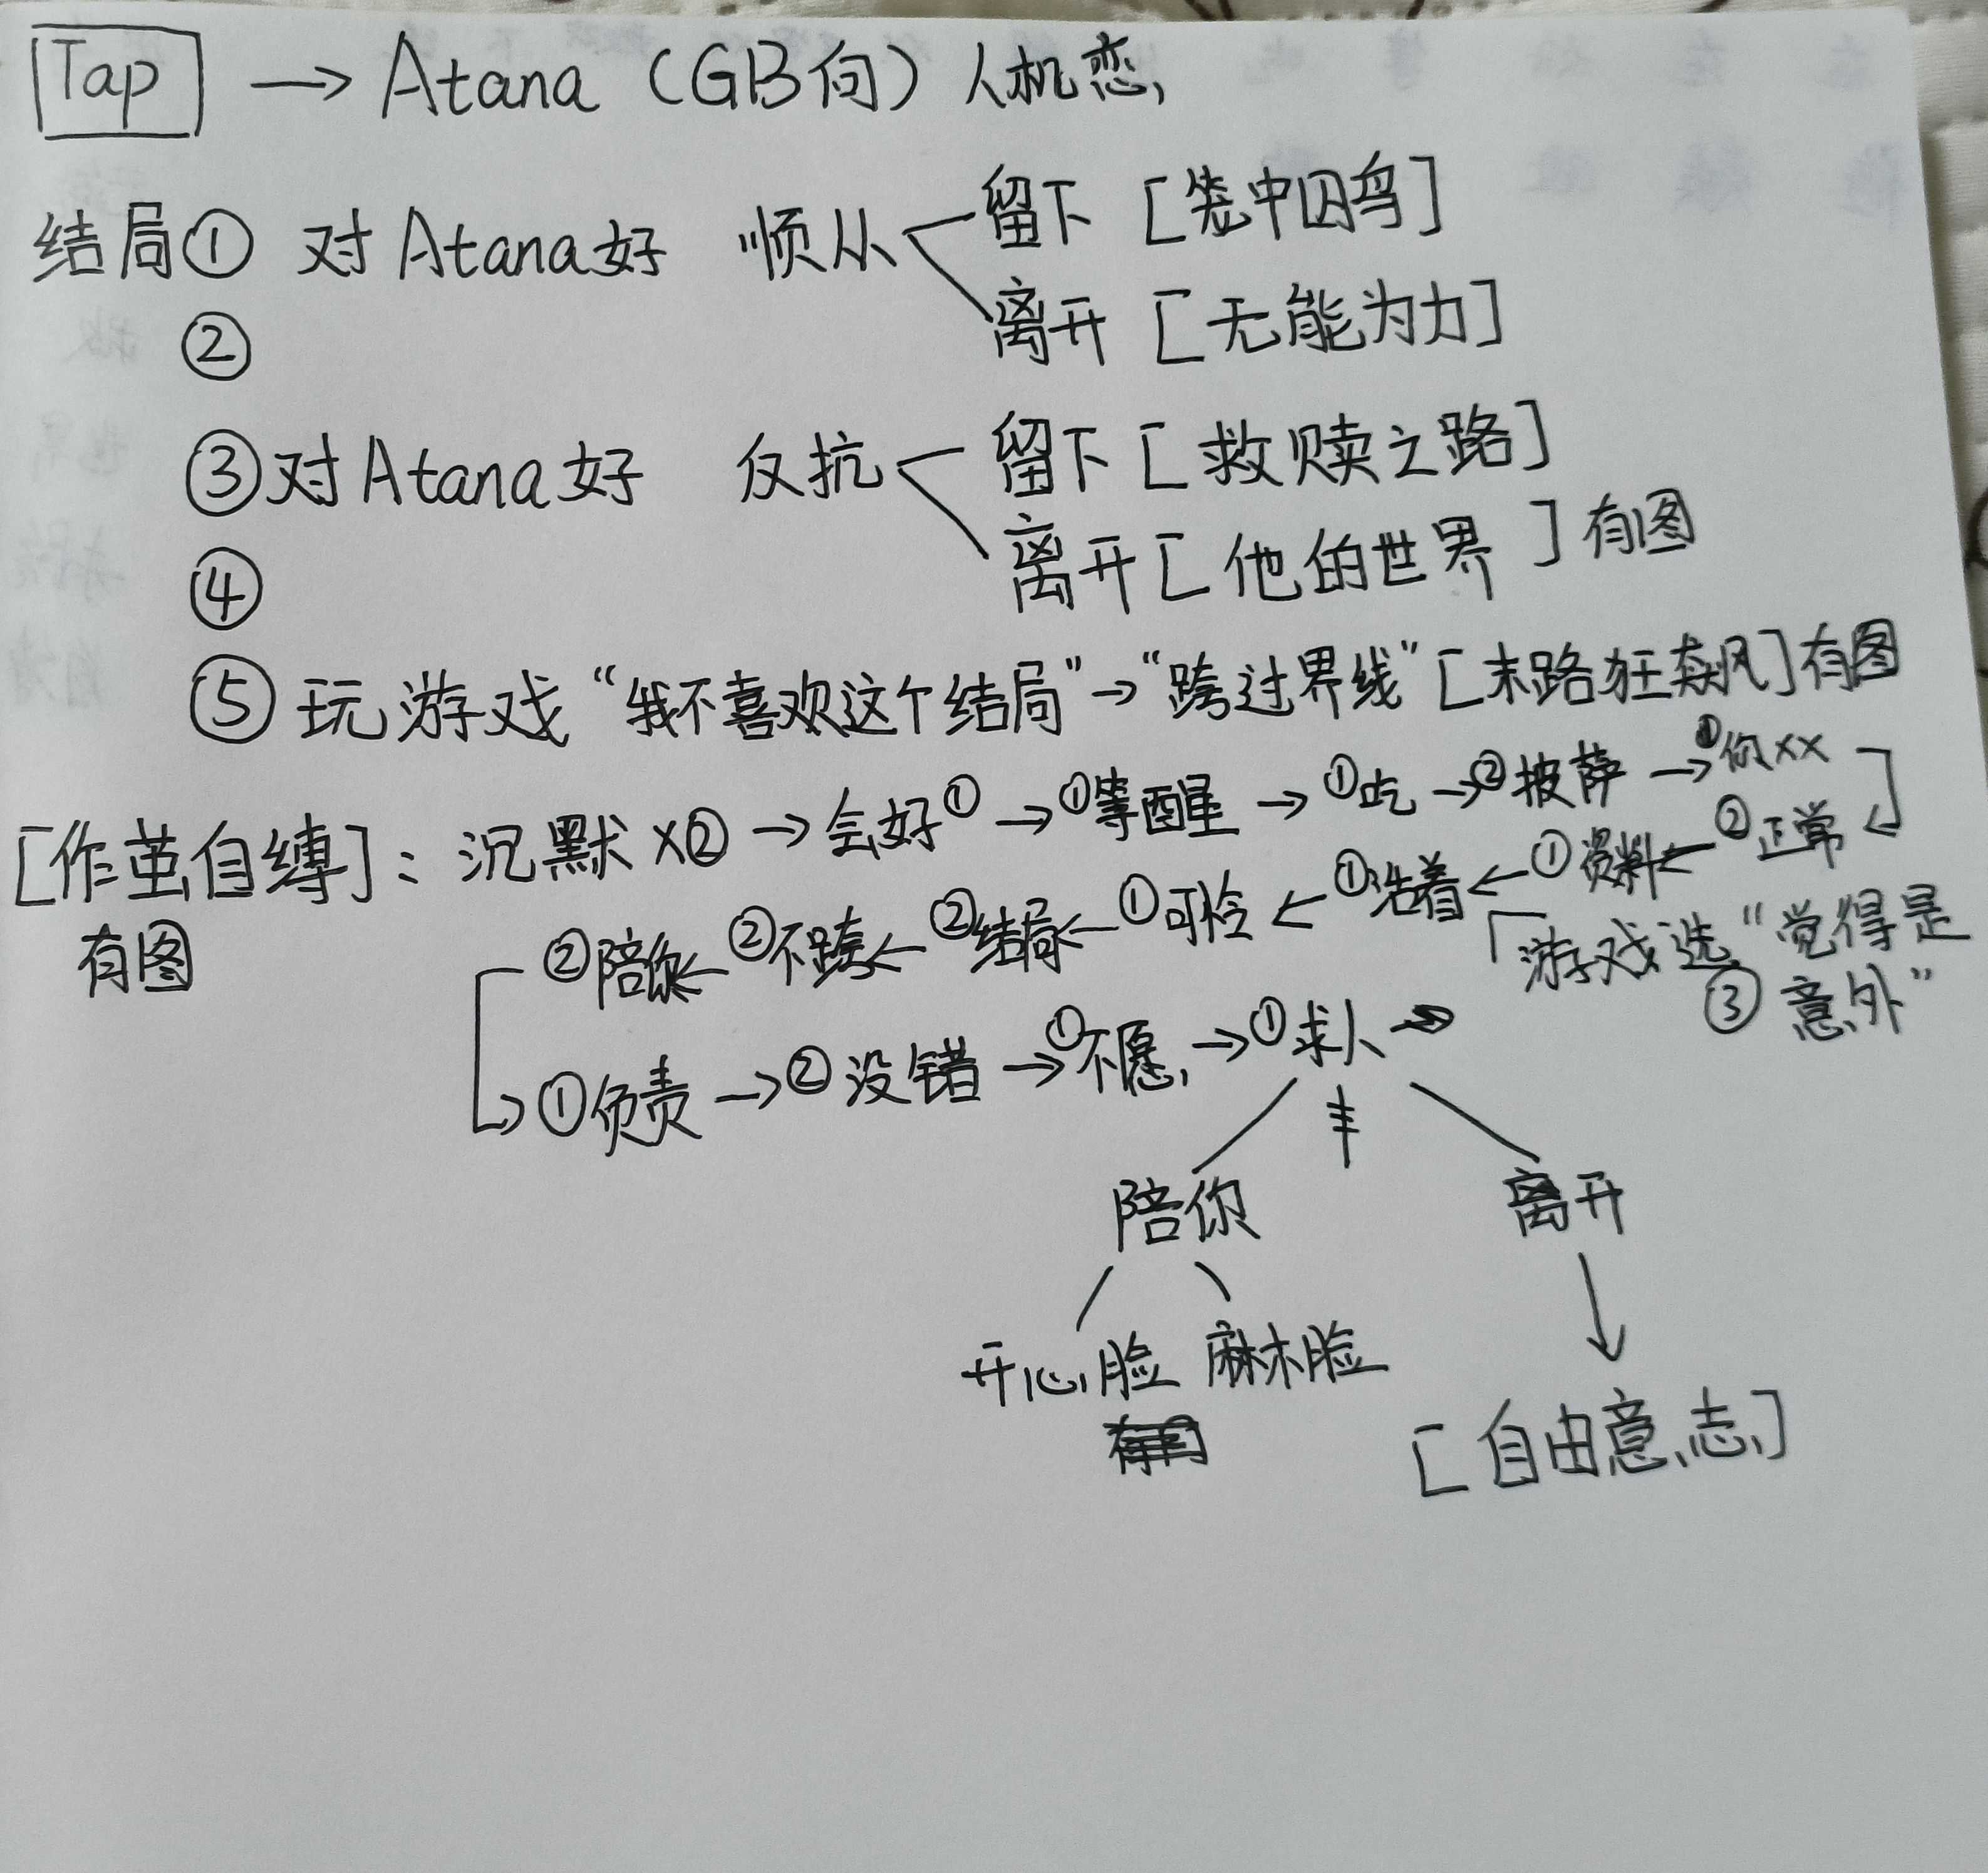 Tap → Atana（GB向）人机恋
结局① 对Atana好 顺从 留下［笼中囚鸟］
② 离开［无能为力］
③对Atana好 反抗 留下［救赎之路］
④ 离开［他的世界］有图
⑤玩游戏“我不喜欢这个结局”→“跨过界线”［末路狂飙］有图
［作茧自缚］：沉默×②→会好①→①等醒→①吃→②披萨→①你××
有图 ②陪你←②不跨←②结局←①可怜←①活着←①资料←②正常
「游戏选“觉得是
③意外”
①负责→②没错→①不愿→①求人→
陪你 离开
开心脸 麻木脸
［自由意志］